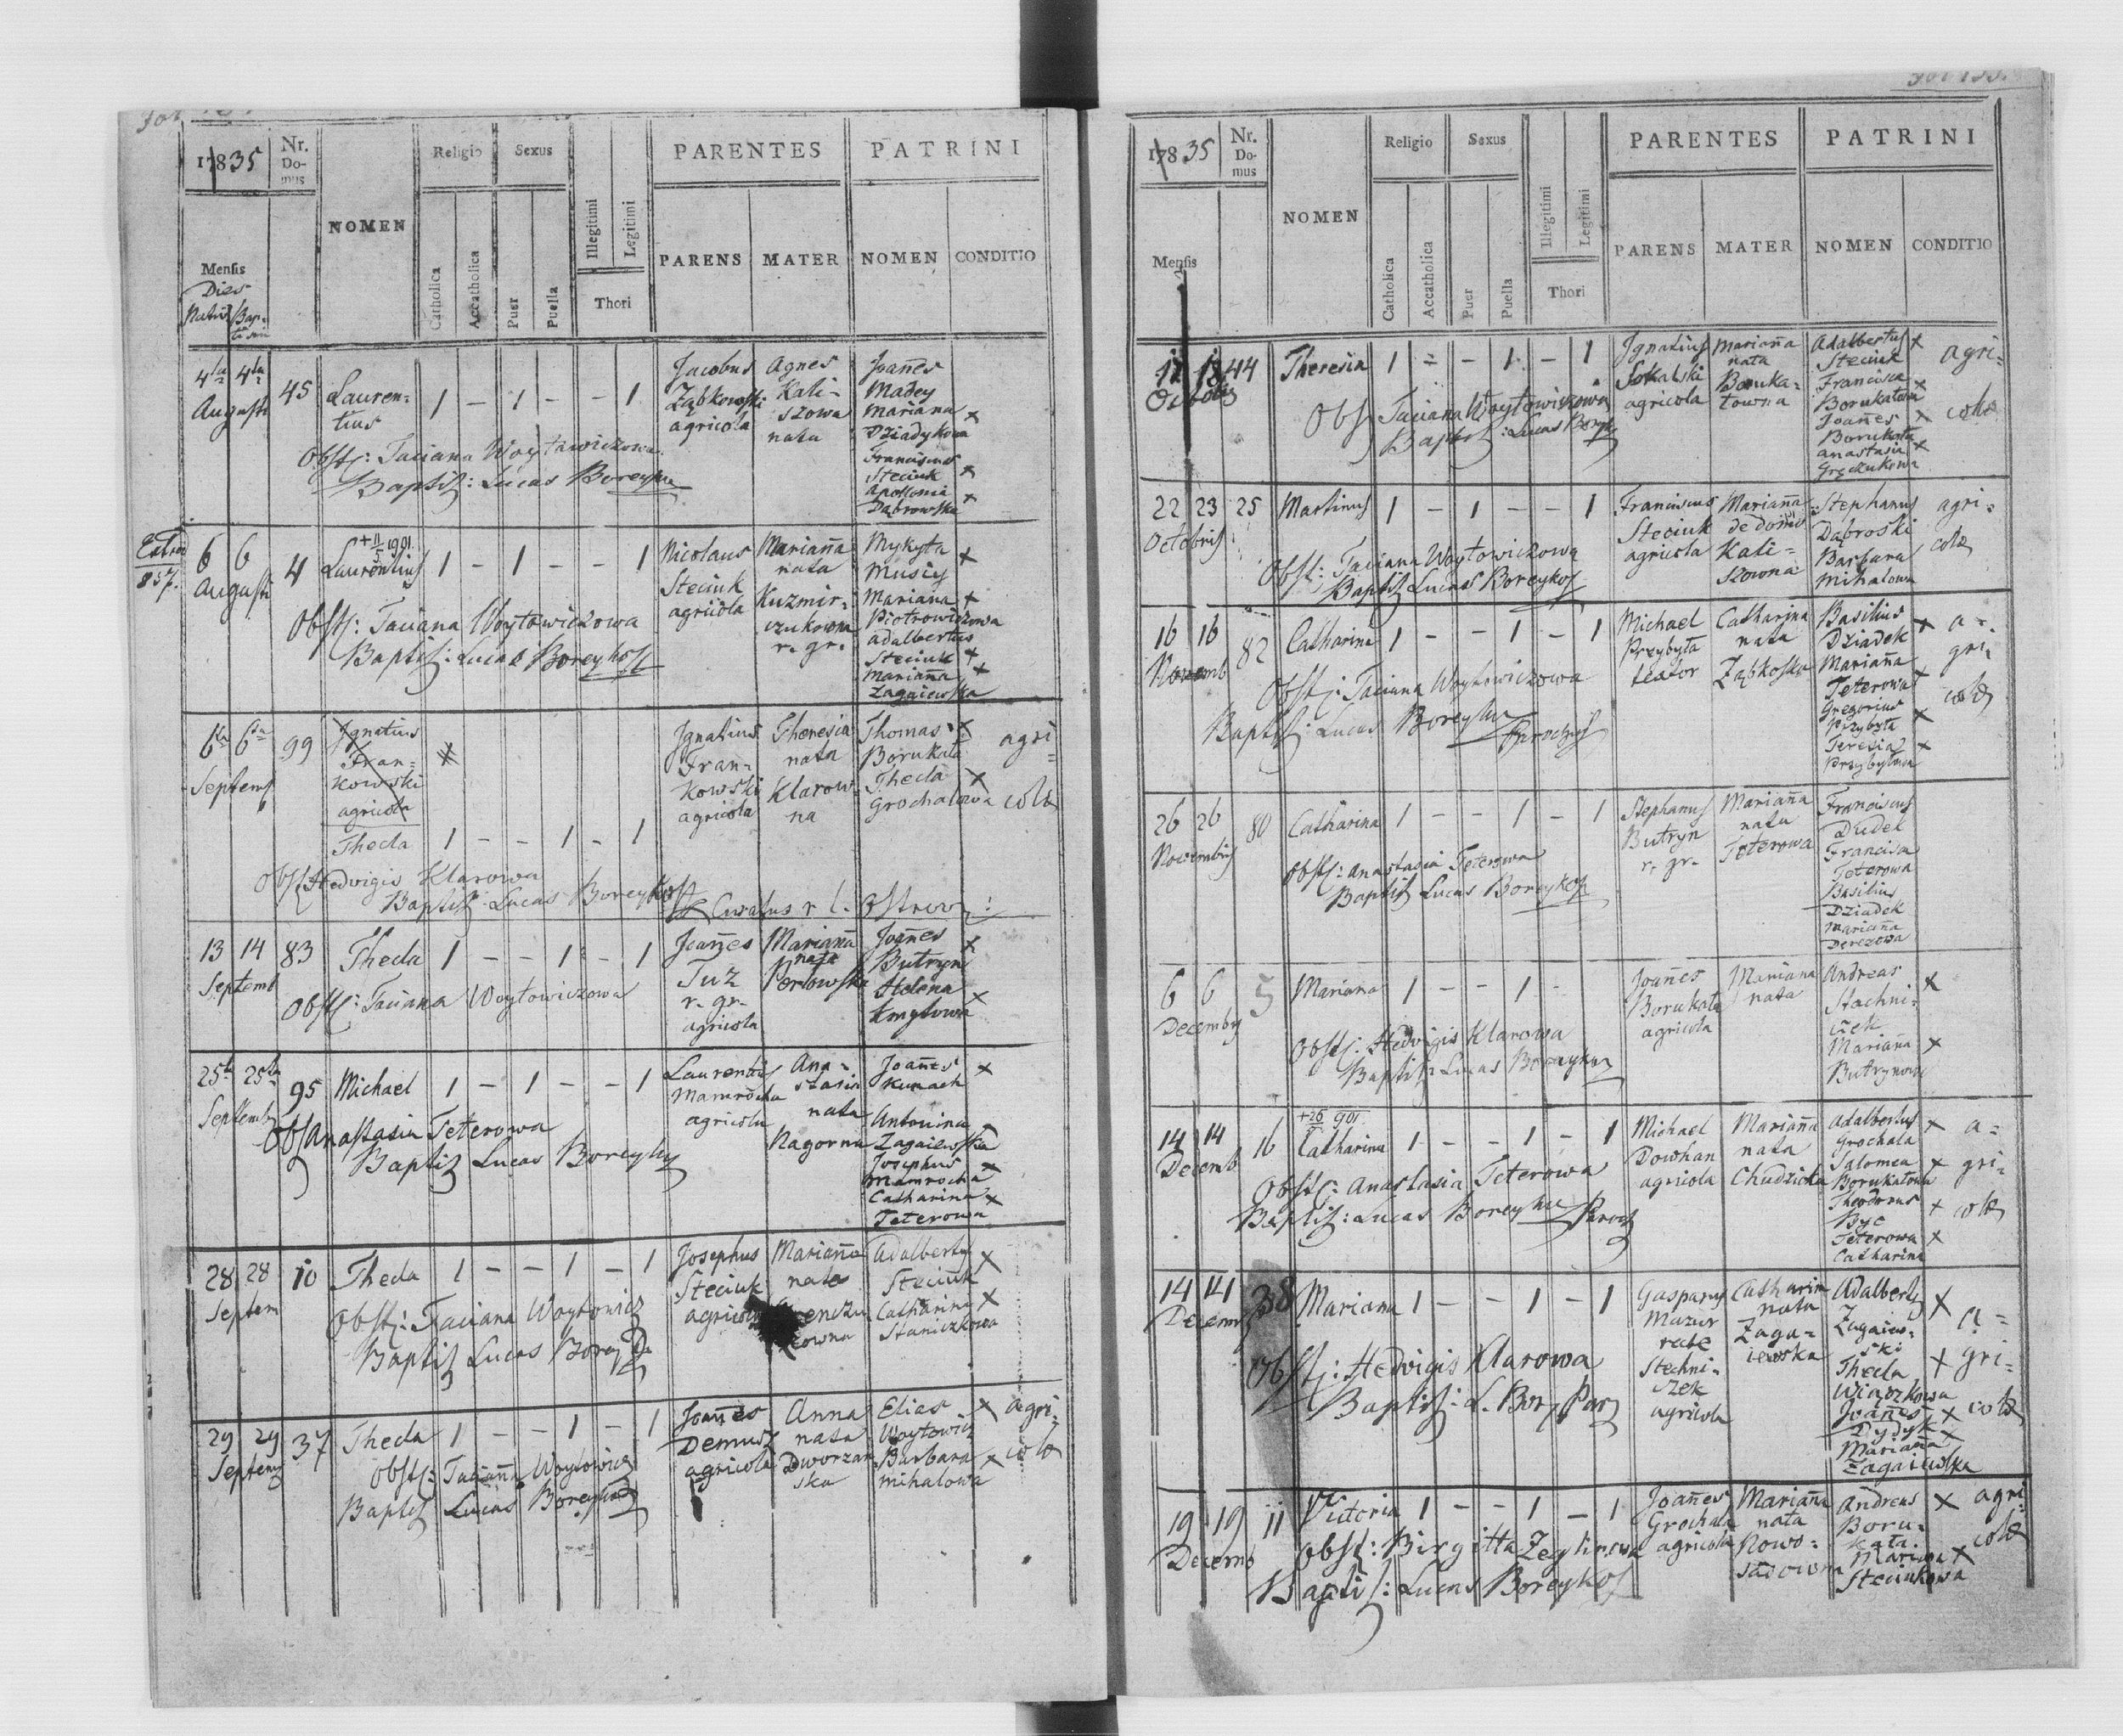 1835
Nr. Domus
NOMEN
Religio
Sexus
PARENTES
PATRINI
Mensis
Dies
Nativ. Baptismi
Catholica
Accatholica
Puer
Puella
Illegitimi
Legitimi
Thori
PARENS
MATER
NOMEN
CONDITIO
4ta 4ta Augusti
45
Lauren=
tius
1 – 1 – – 1
Jacobus
Ząbkowski
agricola
Agnes
Kali=
szowa
nata
Joañes
Madey
Mariana
Dziadykowa
Franciscus
Steciuk
Apollonia
Dąbrowska
Obst: Taciana Woytowiczowa
Baptis: Lucas Boreyko
857.
6 6 Augusti
4
+ 11/5 1901
Laurentius
1 – 1 – – 1
Nicolaus
Steciuk
agricola
Mariaña
nata
Kuzmir=
czukowna
r. gr.
Mykyta
Musiy
Mariana
Piotrowiczowa
Adalbertus
Steciuk
Mariaña
Zagaiewska
Obst: Taciana Woytowiczowa
Baptis: Lucas Boreyko
6ta 6ta Septemb
99
Ignatius
Fran=
kowski
agricola
Thecla
1 – – 1 – 1
Ignatius
Fran=
kowski
agricola
Theresia
nata
Klarow=
na
Thomas
Borukała
Thecla
Grochalowa
agri=
colæ
Obst: Hedvigis Klarowa
Baptis: Lucas Boreyko
Curatus r. l. Ostrov:
13 14 Septemb
83
Thecla
1 – – 1 – 1
Joañes
Tuz
r. gr.
agricola
Mariaña
nata
Perlowska
Joañes
Butryn
Helena
Kmytowa
Obst: Taciana Woytowiczowa
25ta 25ta Septembr
95
Michael
1 – 1 – – 1
Laurentius
Mamrocha
agricola
Ana=
stasia
nata
Nagorna
Joañes
Kunach
Antonina
Zagaiewska
Josephus
Mamrocha
Catharina
Teterowa
Obst Anastasia Teterowa
Baptis Lucas Boreyko
28 28 Septem
10
Thecla
1 – – 1 – 1
Josephus
Steciuk
agricola
Mariaña
nata
Adalbertus
Steciuk
Catharina
Staniczkowa
Obst: Taciana Woytowicz
Baptis Lucas Borey
29 29 Septemb
37
Thecla
1 – – 1 – 1
Joañes
Demusz
agricola
Anna
nata
Dworzan
ska
Elias
Woytowicz
Barbara
Mihalowa
agri=
colæ
Obst: Taciana Woytowicz
Baptis Lucas Boreyko
1835
Nr. Domus
NOMEN
Religio
Sexus
PARENTES
PATRINI
Mensis
Catholica
Accatholica
Puer
Puella
Illegitimi
Legitimi
Thori
PARENS
MATER
NOMEN
CONDITIO
Octobris
44
Theresia
1 – – 1 – 1
Ignatius
Sokalski
agricola
Mariaña
nata
Boruka=
łowna
Adalbertus
Steciuk
Francisca
Borukałowa
Joañes
Borukała
Anastasia
Greczukowa
agri=
colæ
Obst Taciana Woytowiczowa
Baptis: Lucas Borey
22 23 Octobris
25
Martinus
1 – 1 – – 1
Franciscus
Steciuk
agricola
Mariaña
de domo
Kali=
szowna
Stephanus
Dąbroski
Barbara
Mihalowa
agri=
colæ
Obst: Taciana Woytowiczowa
Baptis Lucas Boreyko
16 16 Novemb
82
Catharina
1 – – 1 – 1
Michael
Przybyła
textor
Catharina
nata
Ząbkoska
Basilius
Dziadek
Mariaña
Teterowa
Gregorius
Przybyła
Teresia
Przybyłowa
a=
gri=
colæ
Obst: Taciana Woytowiczowa
Baptis: Lucas Boreyko Parochus
26 26 Novembris
80
Catharina
1 – – 1 – 1
Stephanus
Butryn
r. gr.
Mariaña
nata
Teterowa
Franciscus
Dudek
Francisca
Teterowa
Basilius
Dziadek
Mariana
Derezowa
Obst: Anastasia Teterowa
Baptis Lucas Boreyko
6 6 Decembr
5
Mariana
1 – – 1 –
Joañes
Borukała
agricola
Mariana
nata
Andreas
Stachni=
czek
Mariana
Butrynowa
Obst: Hedvigis Klarowa
Baptis: Lucas Boreyko
14 14 Decemb
16
+ 26 901
Catharina
1 – – 1 – 1
Michael
Dowhan
agricola
Mariaña
nata
Chudzicka
Adalbertus
Grochala
Salomea
Borukałowa
Theodorus
Byc
Teterowa
Catharina
a=
gri=
colæ
Obst: Anastasia Teterowa
Baptis: Lucas Boreyko Paroch
14 14 Decemb
38
Mariana
1 – – 1 – 1
Gasparus
Mazur
recte
Stechni=
czek
agricola
Catharin
nata
Zaga=
iewska
Adalbertus
Zagaiew=
ski
Thecla
Wiązkowa
Joañes
Dydyk
Mariaña
Zagaiewska
a=
gri=
colæ
Obst: Hedvigis Klarowa
Baptis: L. Bor Par
19 19 Decemb
11
Victoria
1 – – 1 – 1
Joañes
Grochala
agricola
Mariaña
nata
Nowo=
sadowna
Andreas
Boru=
kała
Mariana
Steciukowa
agri=
colæ
Obst: Birgitta Zeglinowa
Baptis: Lucas Boreyko